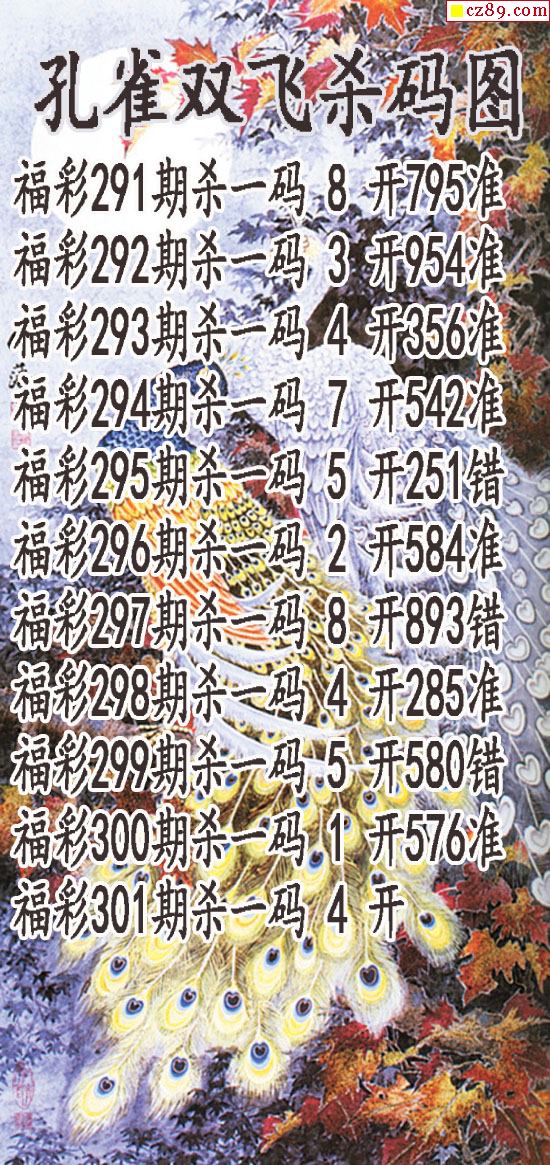 cz89.com
孔雀双飞杀码图
福彩291期杀一码 8 开795准
福彩292期杀一码 3 开954准
福彩293期杀一码 4 开356准
福彩294期杀一码 7 开542准
福彩295期杀一码 5 开251错
福彩296期杀一码 2 开584准
福彩297期杀一码 8 开893错
福彩298期杀一码 4 开285准
福彩299期杀一码 5 开580错
福彩300期杀一码 1 开576准
福彩301期杀一码 4 开